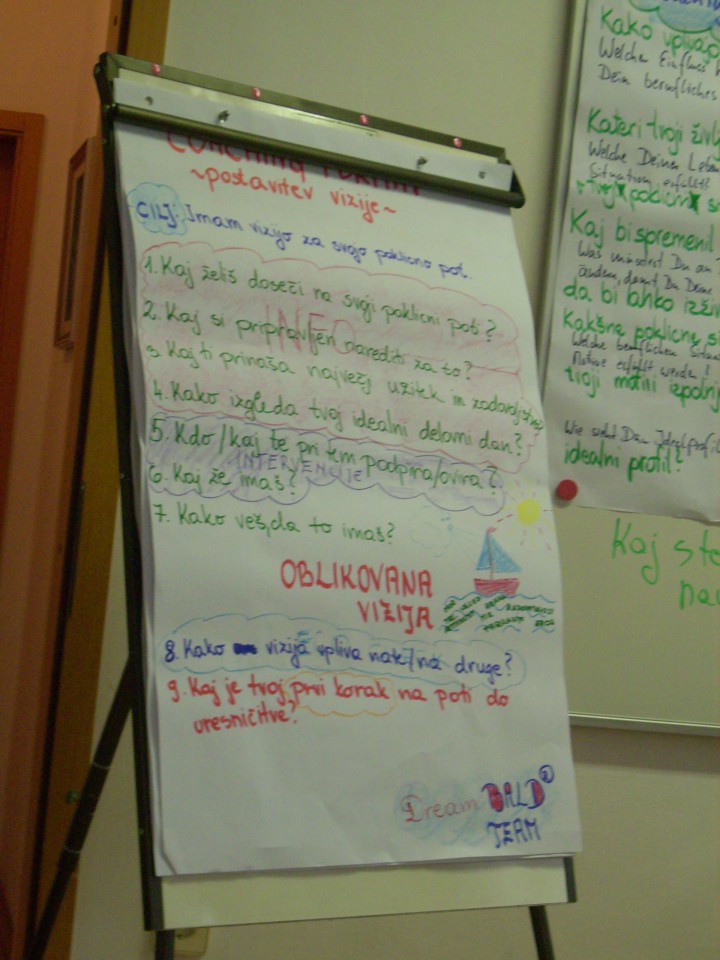 COACHING
~postavitev vizije~
CILJ: Imam vizijo za svojo poklicno pot.
1. Kaj želiš doseči na svoji poklicni poti?
INFO
2. Kaj si pripravljen narediti za to?
3. Kaj ti prinaša največj užitek in zadovoljstvo
4. Kako izgleda tvoj idealni delovni dan?
5. Kdo/kaj te pri tem podpira/ovira?
INTERVENCIJE
6. Kaj že imaš?
7. Kako veš, da to imaš?
OBLIKOVANA
VIZIJA
8. Kako vizija vpliva nate/na druge?
9. Kaj je tvoj prvi korak na poti do
uresničitve?
Dream BALD
TEAM
Kako vpliva
Welchen Einfluss
Dein berufliches
Kateri tvoji živl
Welche Deiner Leben
Situation, erfüllt?
Kaj bi spremenil
Was müsstest Du an
ändern, damit Du Deine
da bi lahko izživ
Kakšne poklicne s
Welche beruflichen Situa
Motive erfüllt werden?
tvoji motivi izpolnj
Wie sieht Dein Idealprofil
idealni profil?
Kaj ste
na